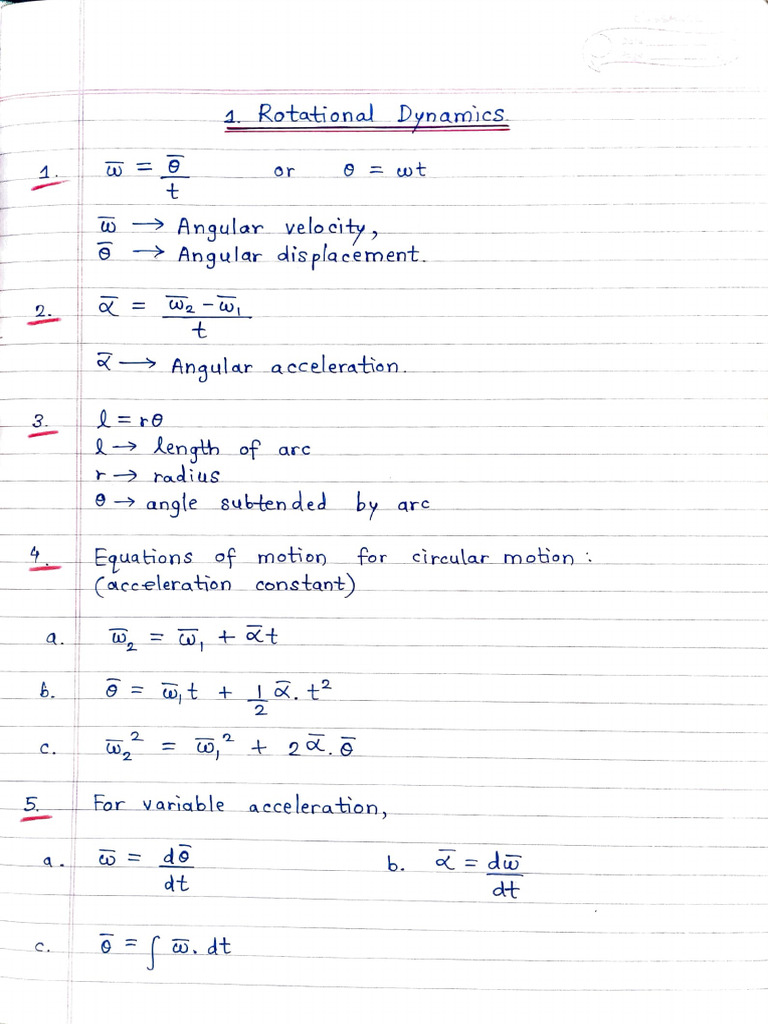 1. Rotational Dynamics.
1. ω̅ = θ̅/t or θ = ωt
ω̅ → Angular velocity,
θ̅ → Angular displacement.
2. α̅ = (ω̅₂ - ω̅₁)/t
α̅ → Angular acceleration.
3. l = rθ
l → length of arc
r → radius
θ → angle subtended by arc
4. Equations of motion for circular motion :
(acceleration constant)
a. ω̅₂ = ω̅₁ + α̅t
b. θ̅ = ω̅₁t + 1/2 α̅. t²
c. ω̅₂² = ω̅₁² + 2α̅.θ̅
5. For variable acceleration,
a. ω̅ = dθ̅/dt b. α̅ = dω̅/dt
c. θ̅ = ∫ ω̅. dt